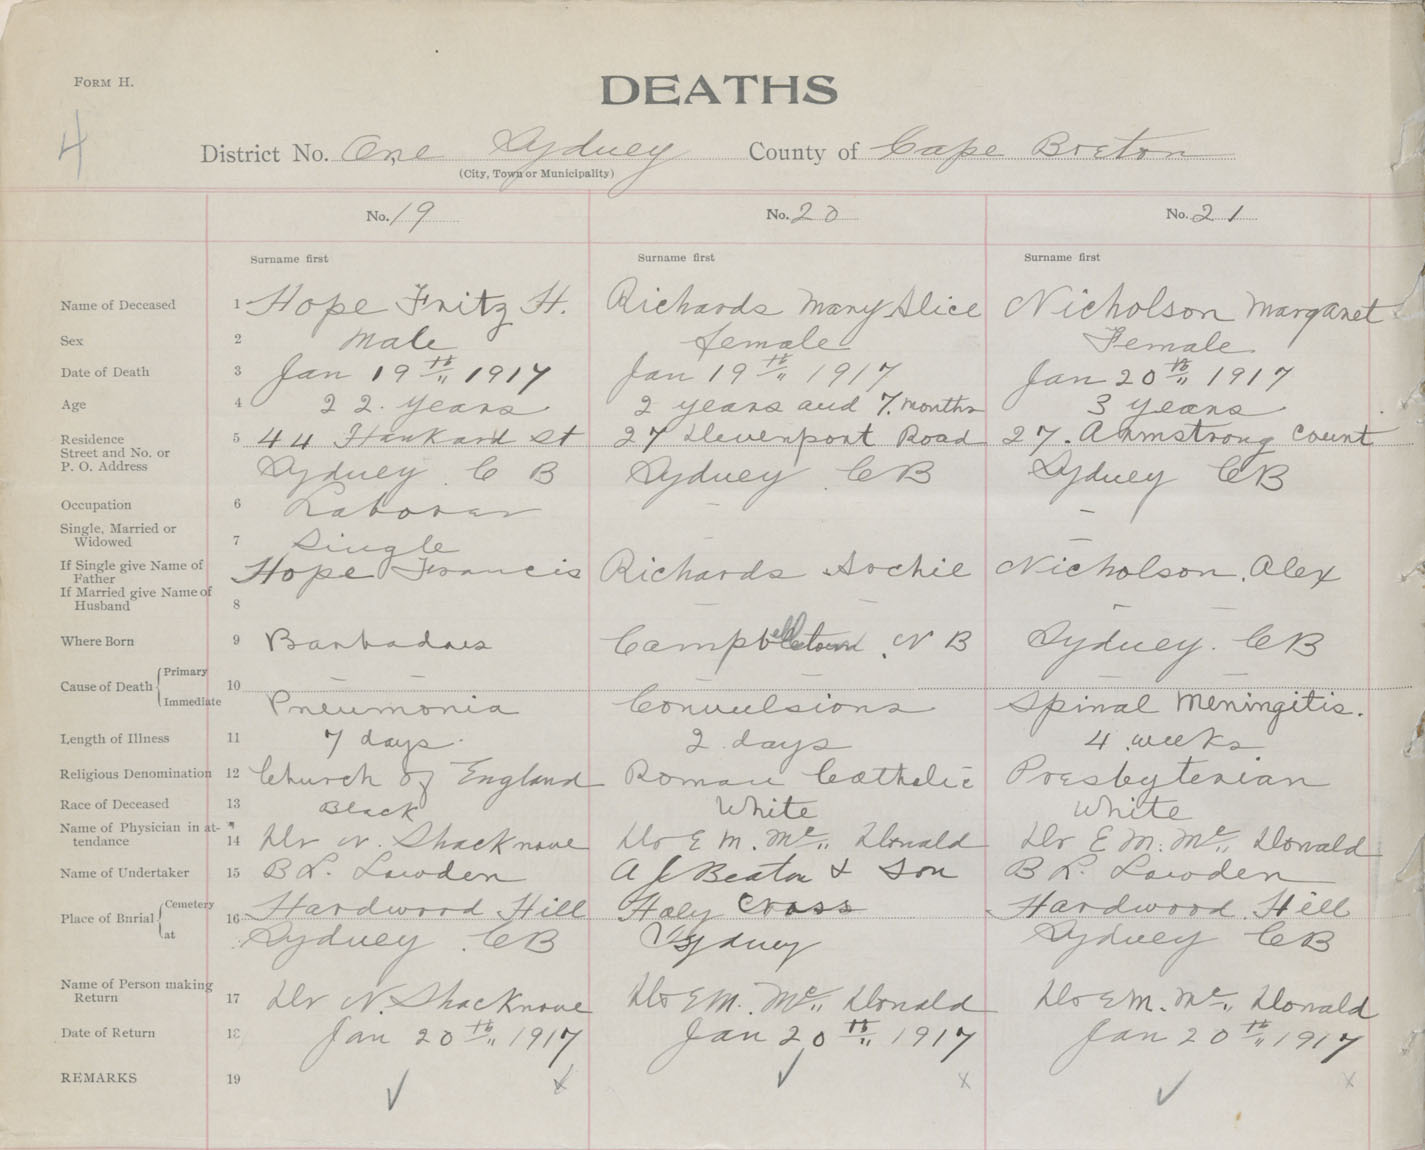 FORM H.
DEATHS
4
District No. One Sydney County of Cape Breton
(City, Town or Municipality)
No. 19 No. 20 No. 21
Surname first Surname first Surname first
Name of Deceased 1 Hope Fritz H. Richards Mary Alice Nicholson Margaret
Sex 2 Male female Female
Date of Death 3 Jan 19th 1917 Jan 19th 1917 Jan 20th 1917
Age 4 22 years 2 years and 7 months 3 years
Residence 5 44 Hankard St 27 Devenport Road 27. Armstrong Court
Street and No. or
P. O. Address Sydney C B Sydney C B Sydney CB
Occupation 6 Laborer - -
Single, Married or
Widowed 7 Single - -
If Single give Name of
Father Hope Francis Richards Archie Nicholson, Alex
If Married give Name of
Husband 8 - - - -
Where Born 9 Barbadoes Campbelltown, N B Sydney. CB
Cause of Death Primary 10 - - - - - -
Immediate Pneumonia Convulsions Spinal Meningitis.
Length of Illness 11 7 days. 2 days 4 weeks
Religious Denomination 12 Church of England Roman Catholic Presbyterian
Race of Deceased 13 Black White White
Name of Physician in at-
tendance 14 Dr N. Shacknove Dr E M. Mc Donald Dr E M. Mc Donald
Name of Undertaker 15 B L. Lowden A J Beaton & Son B L. Lowden
Place of Burial Cemetery 16 Hardwood Hill Holy Cross Hardwood Hill
at Sydney CB Sydney Sydney CB
Name of Person making
Return 17 Dr N. Shacknove Dr E M. Mc Donald Dr E M. Mc Donald
Date of Return 18 Jan 20th 1917 Jan 20th 1917 Jan 20th 1917
REMARKS 19 ✓ x ✓ x ✓ x